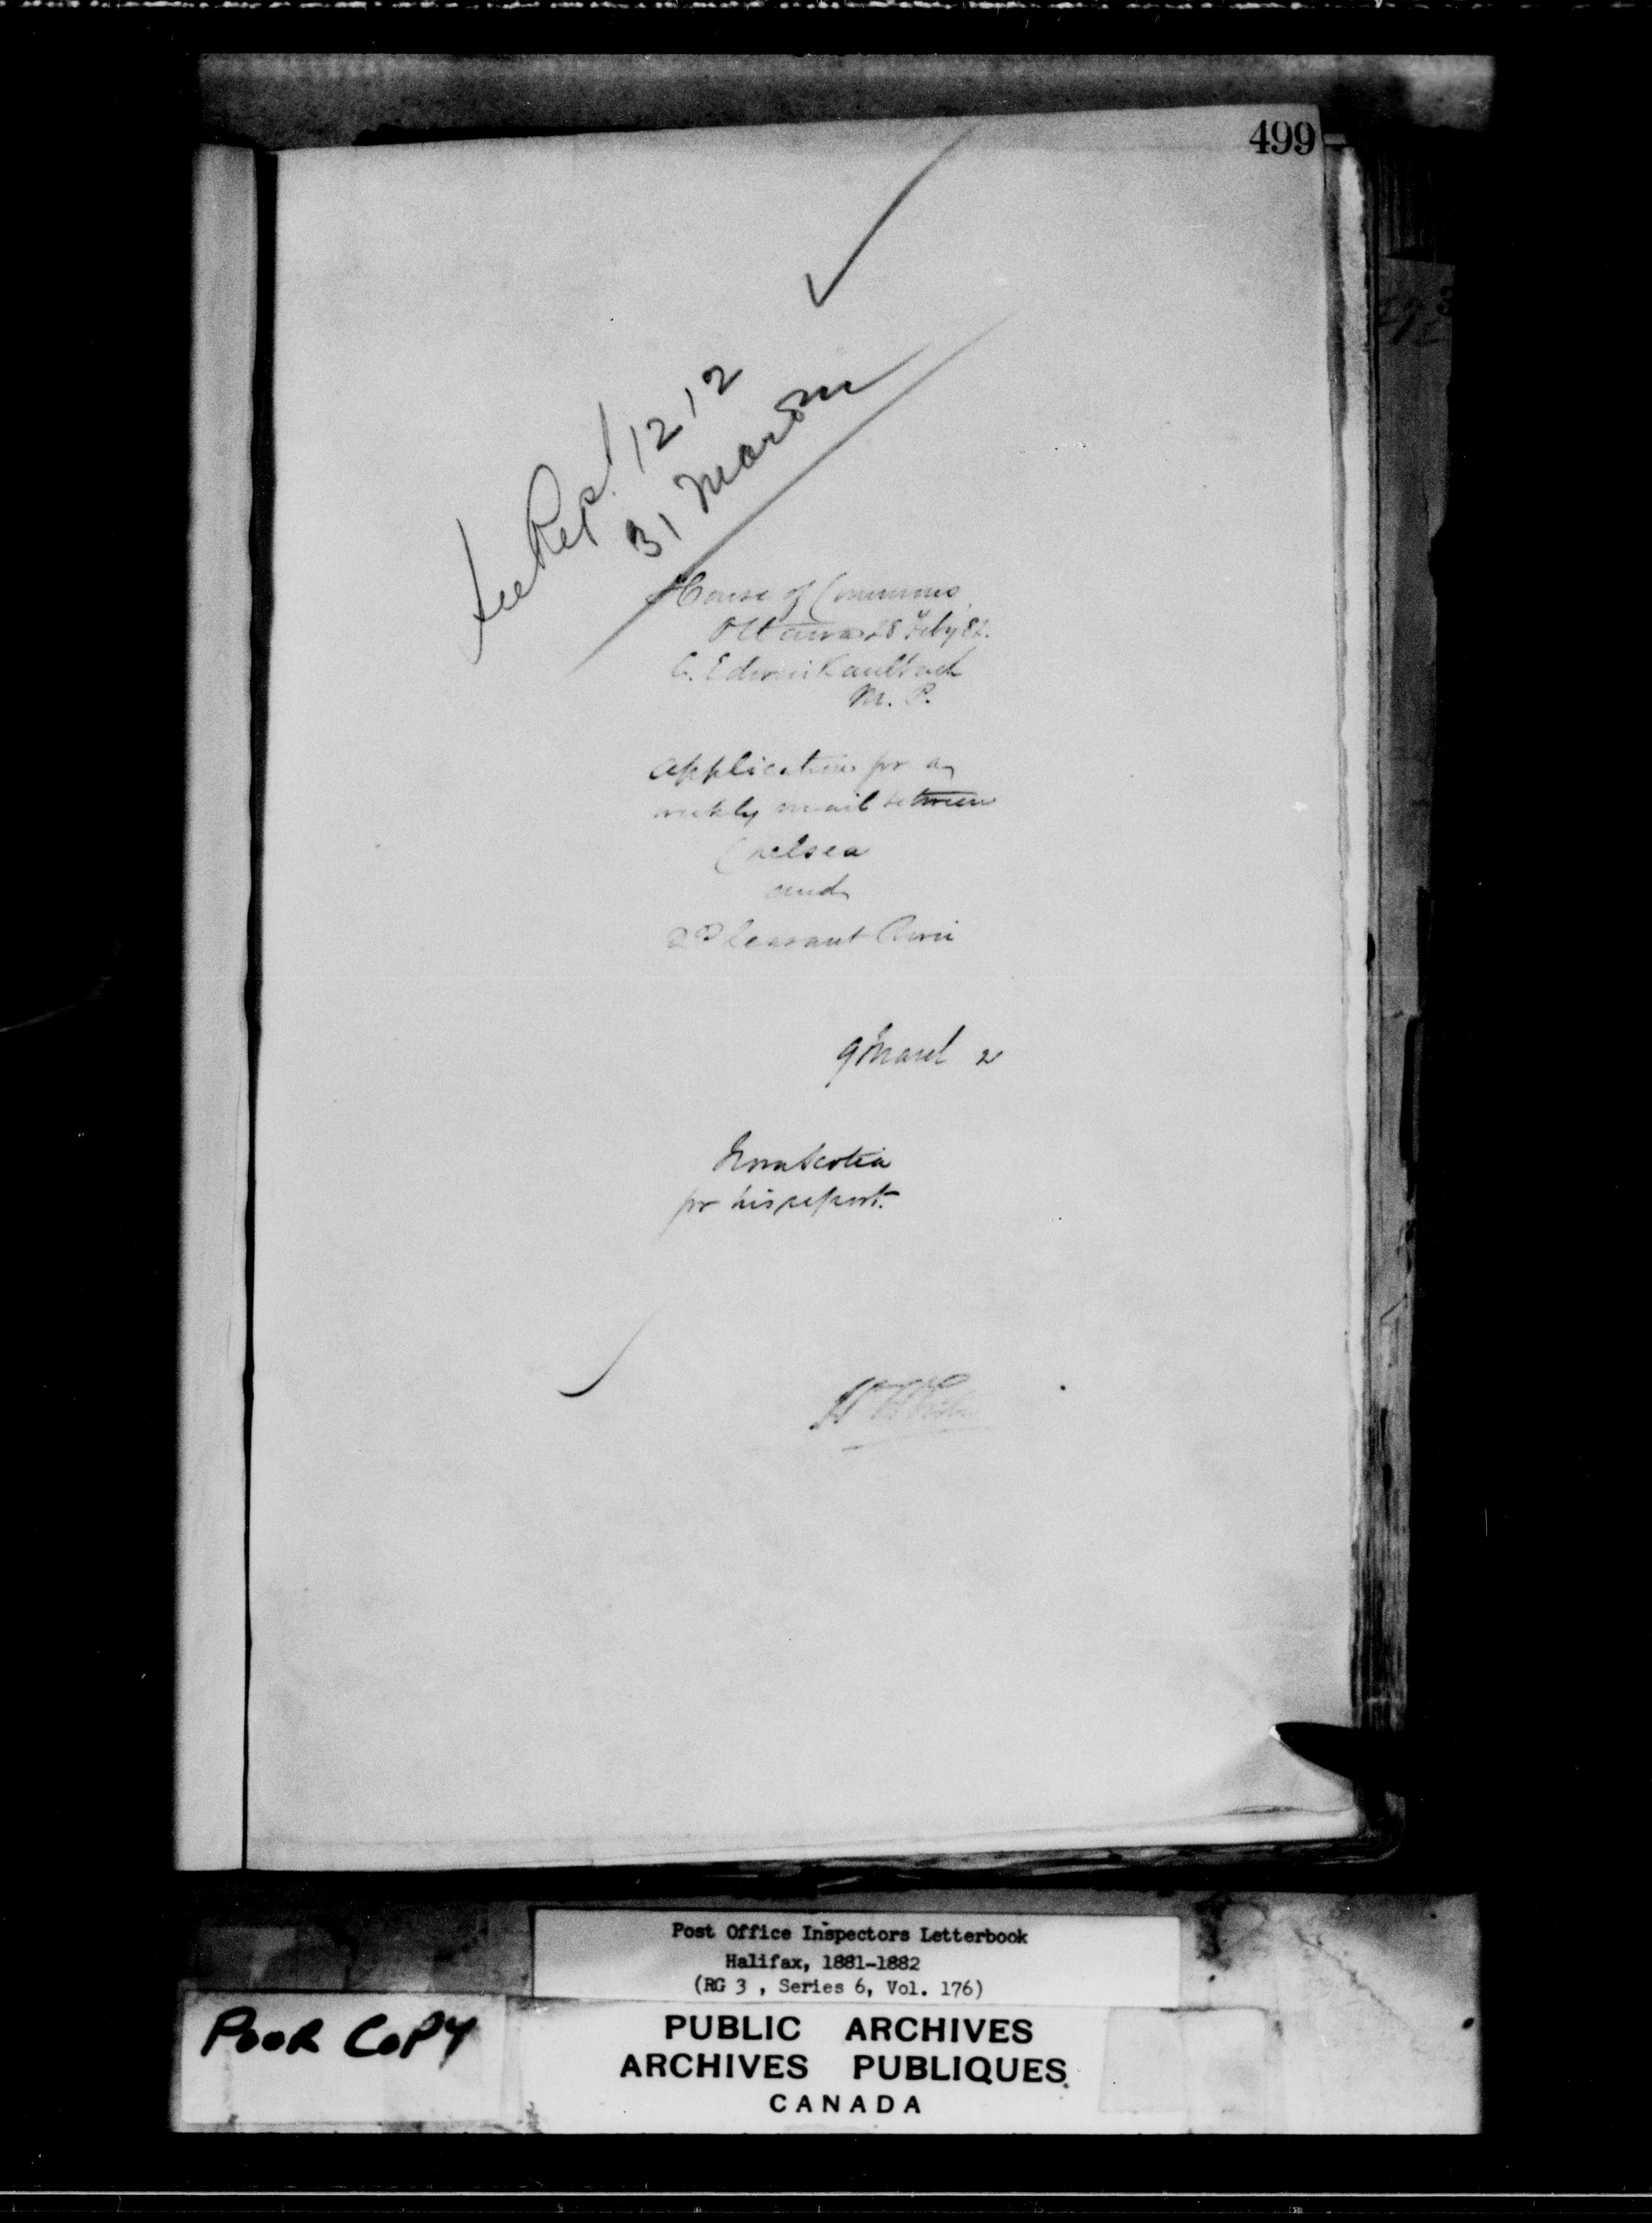 499
See Rept. 1212
31 March
House of Commons
Ottawa 28 Feby 82.
C. Edwin Kaulbach
M. P.
Application for a
weekly mail between
Chelsea
and
Pleasant River
9 March 2
Nova Scotia
for his report.
Post Office Inspectors Letterbook
Halifax, 1881-1882
(RG 3 , Series 6, Vol. 176)
POOR COPY
PUBLIC ARCHIVES
ARCHIVES PUBLIQUES
CANADA